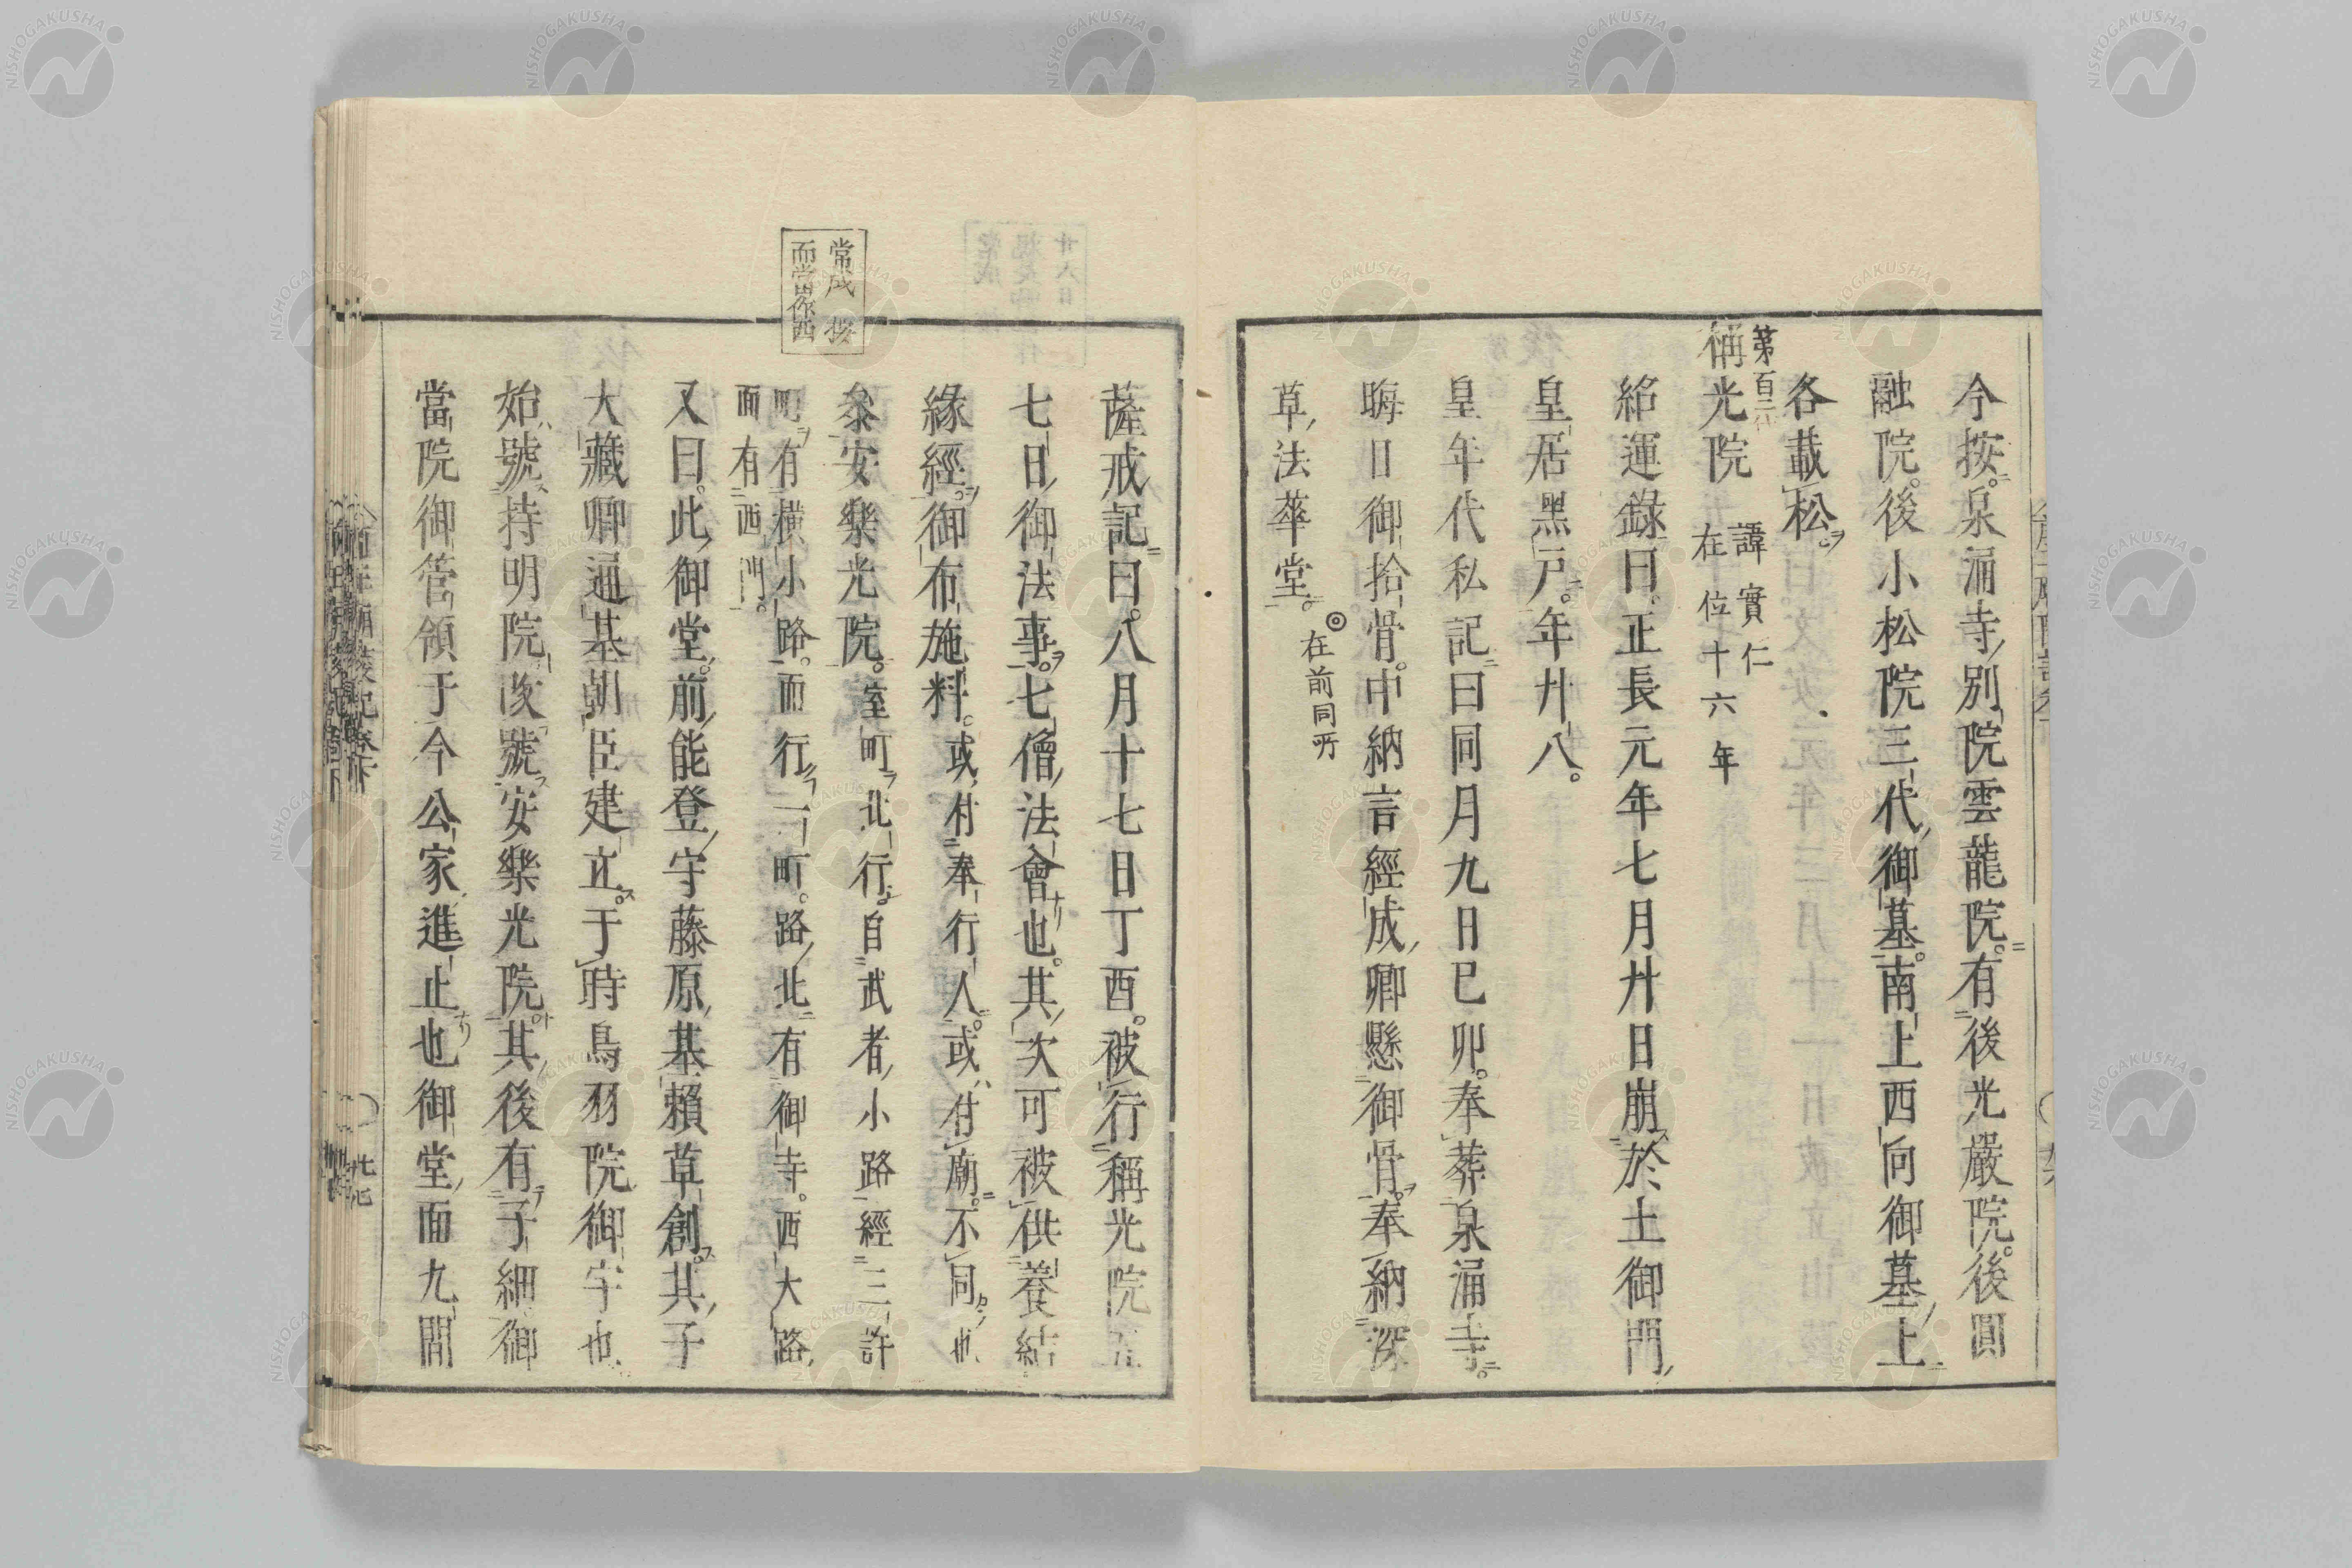 今按。泉涌寺別院雲龍院。有後光嚴院。後圓
融院。後小松院三代御墓。南上西向御墓上
各載松
第百二代
稱光院
諱實仁
在位十六年
紹運錄曰。正長元年七月廿日崩於土御門
皇居黑戸。年廿八。
皇年代私記曰同月九日已卯。奉葬泉涌寺。
晦日御拾骨。中納言經成卿懸御骨。奉納深
草法華堂。◎在前同所
薩戒記曰。八月十七日丁酉。被行稱光院五
七日御法事。七僧法會也。其次可被供養結
緣經。御布施料。或付奉行人。或付廟。不同也
參安樂光院。室町北行自武者小路經三許
町有橫小路。而行一町。路北有御寺。西大路
面有西門。
又曰。此御堂前能登守藤原基賴草創。其子
大藏卿通基朝臣建立。于時鳥羽院御宇也
始號持明院改號安樂光院。其後有子細御
當院御管領于今公家進止也御堂面九間
常成按
而當作西
廿七
NISHOGAKUSHA